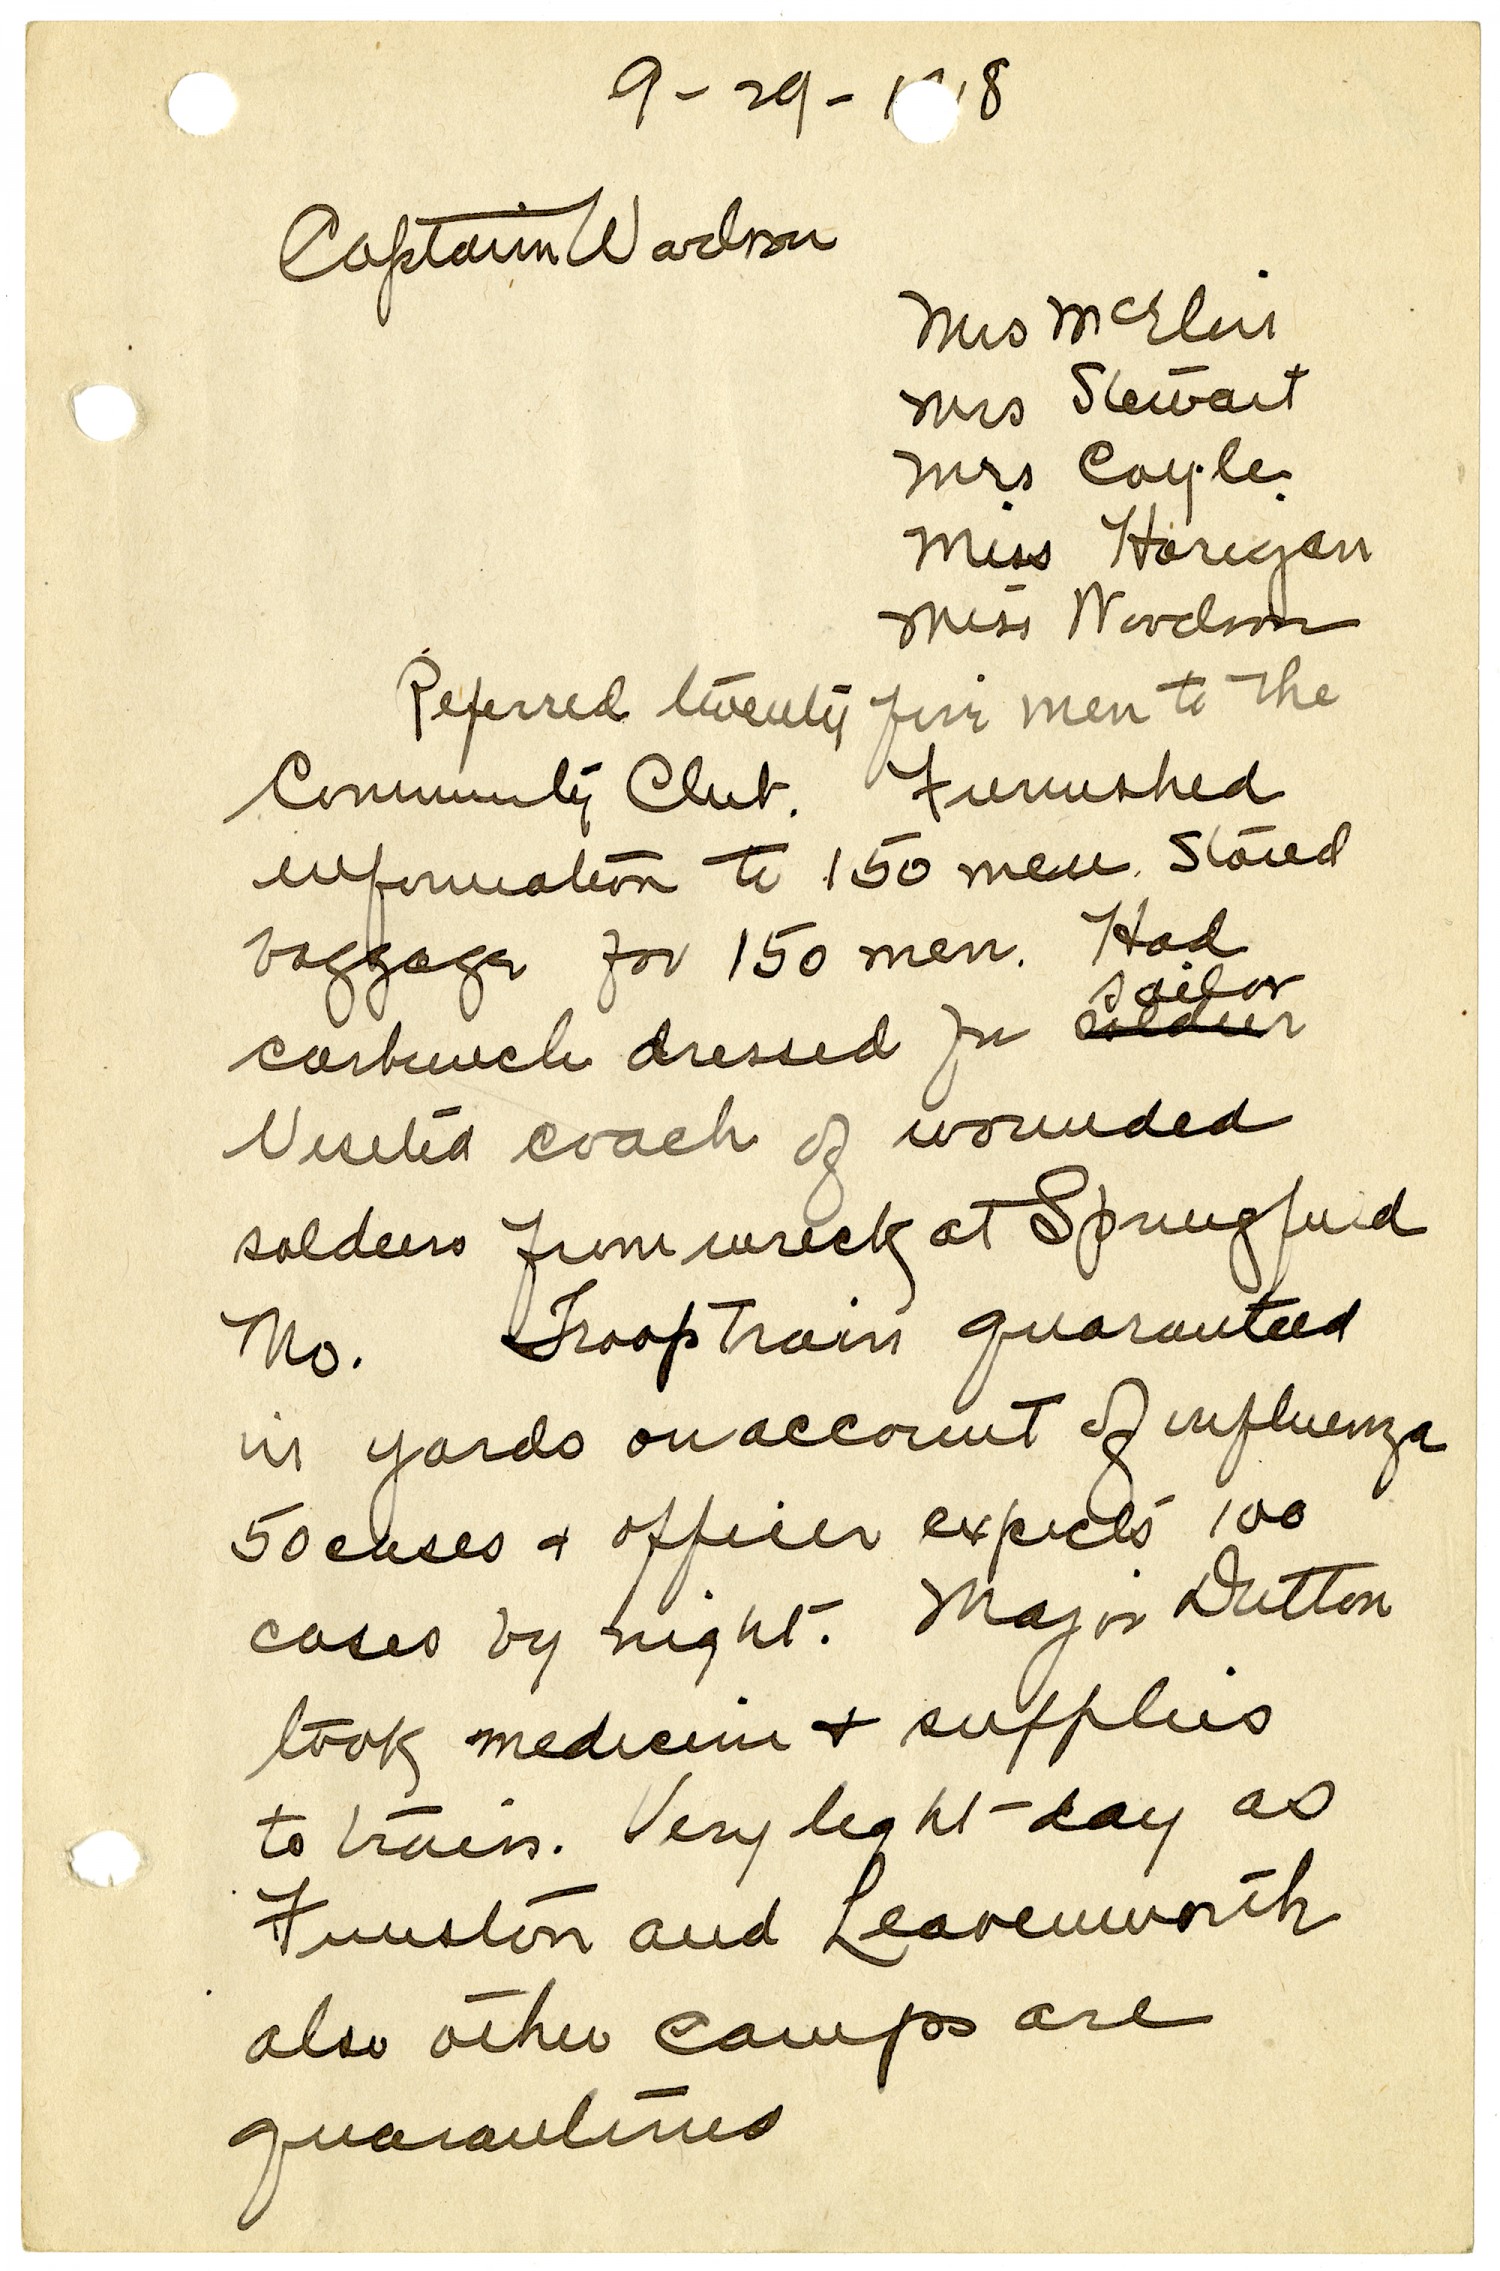 9-29-1918
Captain Woodson
Mrs McElin
Mrs Stewart
Mrs Coyle
Miss Horigan
Miss Woodson
Referred twenty five men to the
Community Club. Furnished
information to 150 men. Stored
baggage for 150 men. Had
sailor
carbuncle dressed for soldier
Visited coach of wounded
soldiers from wreck at Springfield
Mo. Troop train quaranteed
in yards on account of influenza
50 cases & officer expects 100
cases by night. Major Dutton
took medicine & supplies
to train. Very light day as
Funston and Leavenworth
also other camps are
quarantines